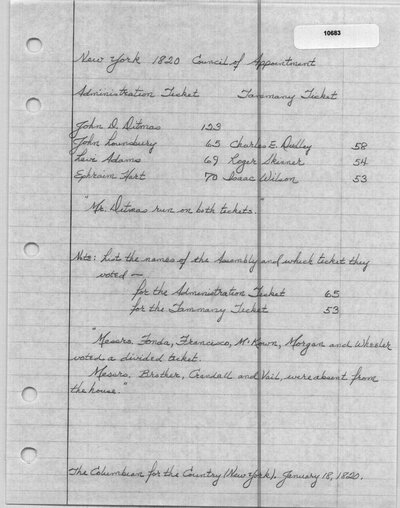 10683
New York 1820 Council of Appointment
Administration Ticket Tammany Ticket
John D. Ditmas 123
John Lounsbury 65 Charles E. Dudley 58
Levi Adams 69 Roger Skinner 54
Ephraim Hart 70 Isaac Wilson 53
"Mr. Ditmas run on both tickets."
Note: Lists the names of the Assembly and which ticket they
voted —
for the Administration Ticket 65
for the Tammany Ticket 53
"Messrs. Fonda, Francisco, McKown, Morgan and Wheeler
voted a divided ticket.
Messrs. Brother, Crandall and Vail, were absent from
the house."
The Columbian for the Country (New York). January 18, 1820.